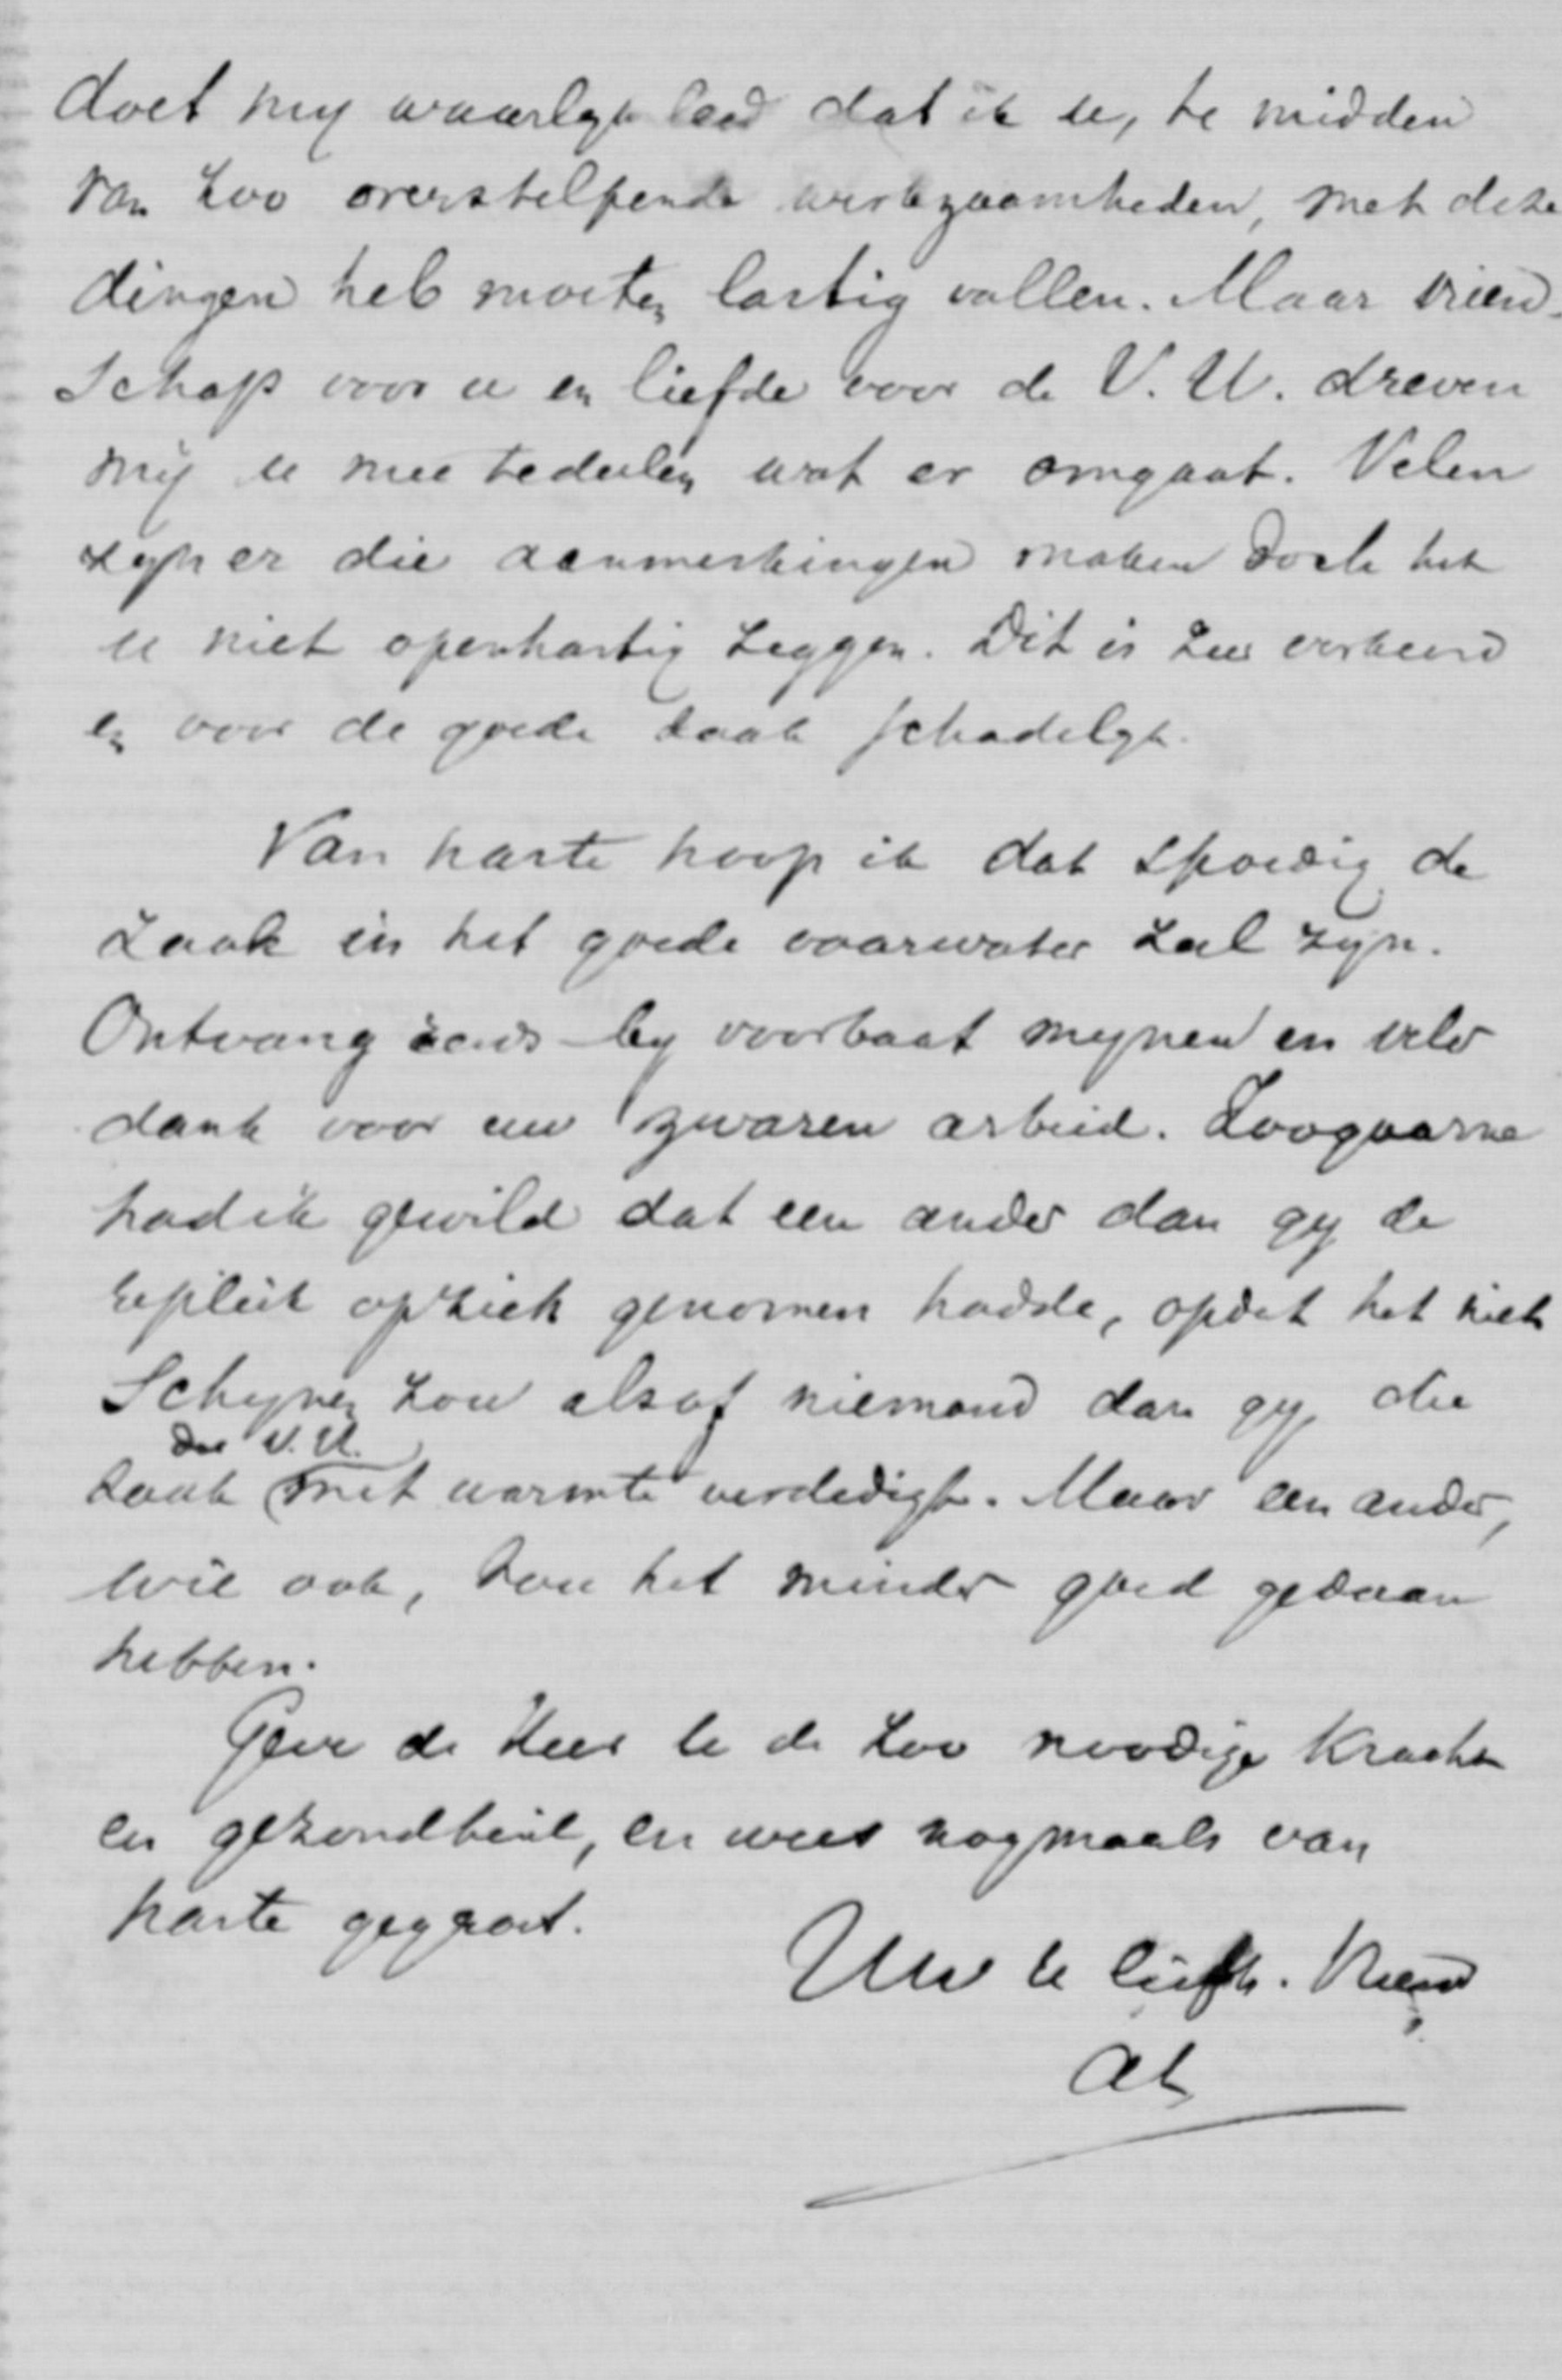 doet my waarlyk leed dat ik u, te midden
van zoo overstelpende werkzaamheden, met deze
dingen heb moeten lastig vallen. Maar vriend-
schap voor u en liefde voor de V. U. dreven
mij u mee tedeelen wat er omgaat. Velen
zyn er die aanmerkingen maken doch het
u niet openhartig zeggen. Dit is zeer verkeerd
en voor de goede zaak schadelyk.
Van harte hoop ik dat spoedig de
zaak in het goede vaarwater zal zyn.
Ontvang reeds by voorbaat mynen en veler
dank voor uw zwaren arbeid. Zoogaarne
had ik gewild dat een ander dan gy de
repliek op zich genomen hadde, opdat het niet
schynen zou alsof niemand dan gy die
der V. U.
zaak met warmte verdedigt. Maar een ander,
wie ook, zou het minder goed gedaan
hebben.
Geve de Heer u de zoo noodige kracht
en gezondheid, en wees nogmaals van
harte gegroet.
Uw u liefh. Vriend